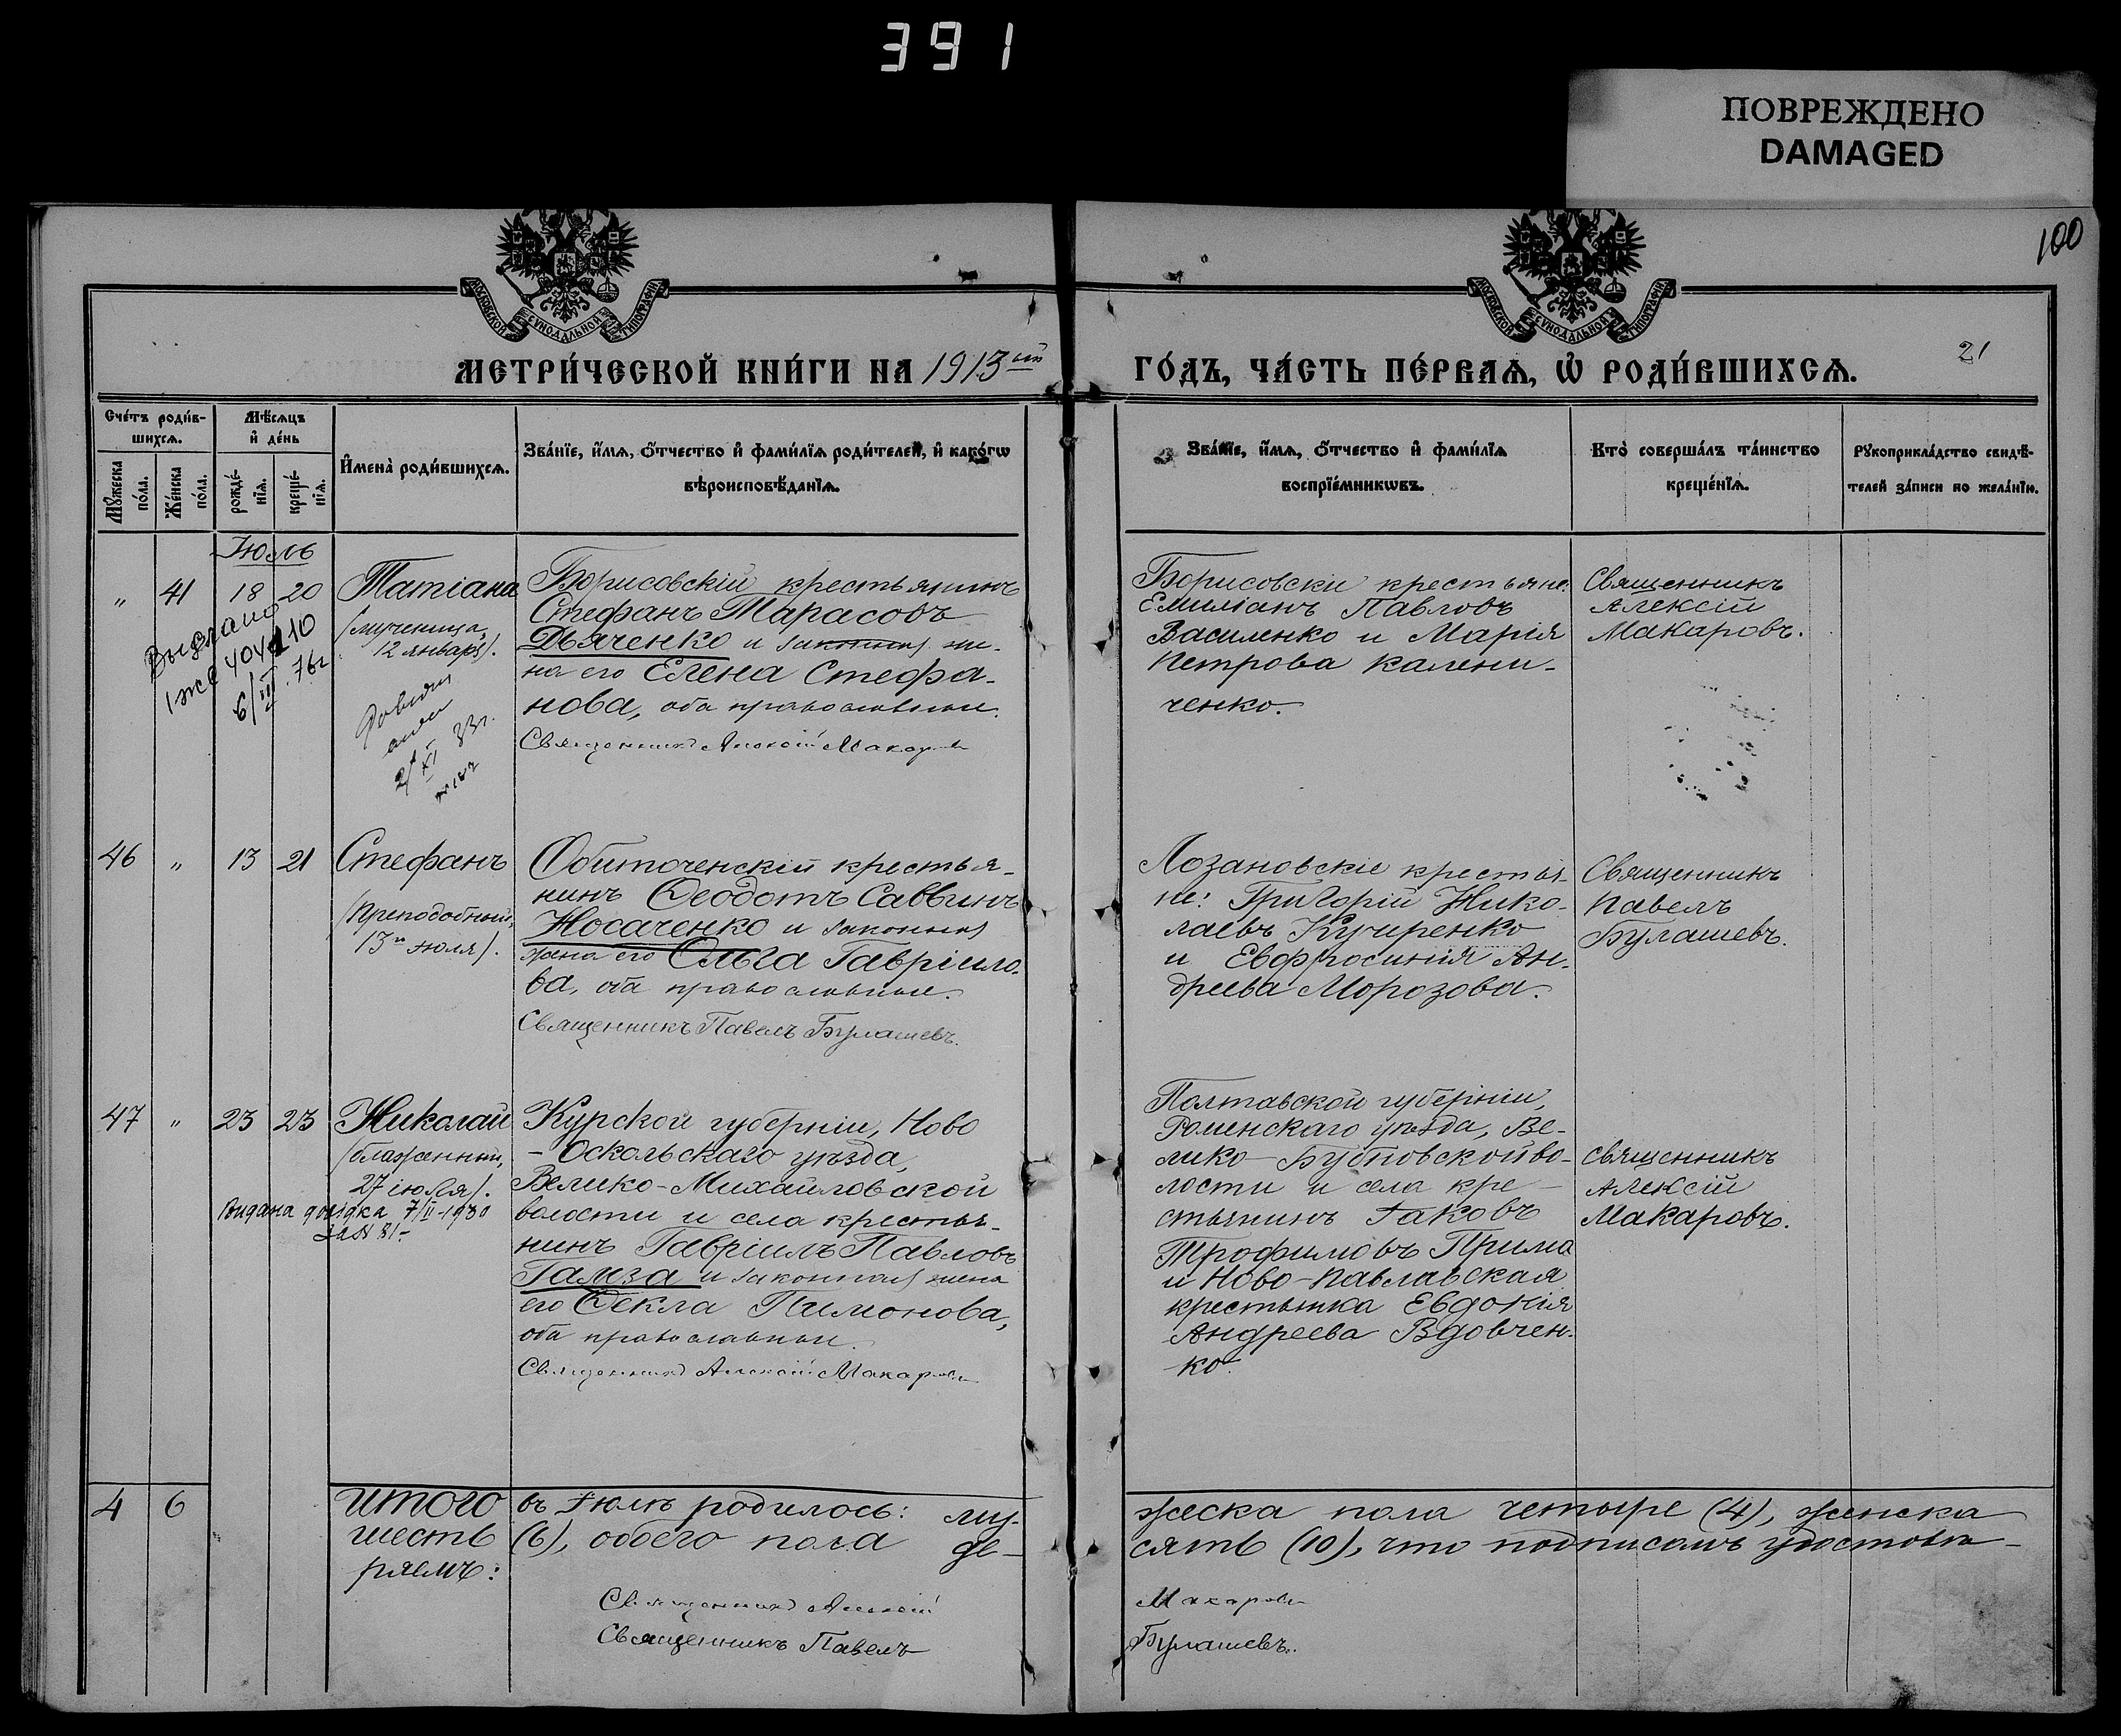 391
ПОВРЕЖДЕНО
DAMAGED
100
МОСКОВСКОЙ СѴНОДАЛЬНОЙ ТИПОГРАФІИ
МОСКОВСКОЙ СѴНОДАЛЬНОЙ ТИПОГРАФІИ
МЕТРИ́ЧЕСКОЙ КНИ́ГИ НА 1913ый
ГО́ДЪ, ЧА́СТЬ ПЕ́РВАѦ, Ѽ РОДИ́ВШИХСѦ.
21
Сче́тъ роди́в-
шихсѧ.
Мѣ́сѧцъ
и҆ де́нь
Мꙋ́жеска
по́ла.
Же́нска
по́ла.
рожде́-
нїѧ.
креще́-
нїѧ.
И҆мена̀ роди́вшихсѧ.
Зва́нїе, и҆́мѧ, ѻ҆́тчество и҆ фами́лїѧ роди́телей, и҆ како́гѡ
вѣроисповѣ́данїѧ.
Зва́нїе, и҆́мѧ, ѻ҆́тчество и҆ фами́лїѧ
воспрїе́мникѡвъ.
Кто̀ соверша́лъ та́инство
креще́нїѧ.
Рꙋкоприкла́дство свидѣ́-
телей за́писи по жела́нїю.
Іюль
" 41 18 20 Татіана
(мученица,
12 января).
Выдано
6/III 76г
21/XI 83г.
Борисовскій крестьянинъ
Стефанъ Тарасовъ
Дьяченко и законная же-
на его Елена Стефа-
нова, оба православные.
Священникъ Алексій Макаровъ
Борисовскіе крестьяне:
Емиліанъ Павловъ
Василенко и Марія
Петрова Калени-
ченко.
Священникъ
Алексій
Макаровъ.
46 " 13 21 Стефанъ
(Преподобный,
13го іюля).
Обиточенскій крестья-
нинъ Ѳеодотъ Саввинъ
Носаченко и законная
жена его Ольга Гавріило-
ва, оба православные.
Священникъ Павелъ Булашевъ.
Лозановскіе крестья-
не: Григорій Нико-
лаевъ Кучиренко
и Евфросинія Ан-
дреева Морозова.
Священникъ
Павелъ
Булашевъ.
47 " 23 23 Николай
(блаженный,
27 іюля).
Видана довідка 7/II-1930
за № 81-
Курской губерніи, Ново
-Оскольскаго уѣзда,
Велико-Михайловской
волости и села крестья-
нинъ Гавріилъ Павловъ
Гамза и законная жена
его Ѳекла Пимонова,
оба православные.
Священникъ Алексій Макаровъ
Полтавской губерніи,
Роменскаго уѣзда, Ве-
лико-Бубновской во-
лости и села кре-
стьянинъ Іаковъ
Трофимовъ Прима
и Ново-Павлавская
крестьянка Евдокія
Андреева Вдовчен-
ко.
Священникъ
Алексій
Макаровъ.
4 6 Итого въ Іюлѣ родилось: му-
жеска пола четыре (4), женска
шесть (6), обоего пола де-
сять (10), что подписомъ удостовѣ-
ряемъ:
Священникъ Алексій Макаровъ
Священникъ Павелъ Булашевъ.